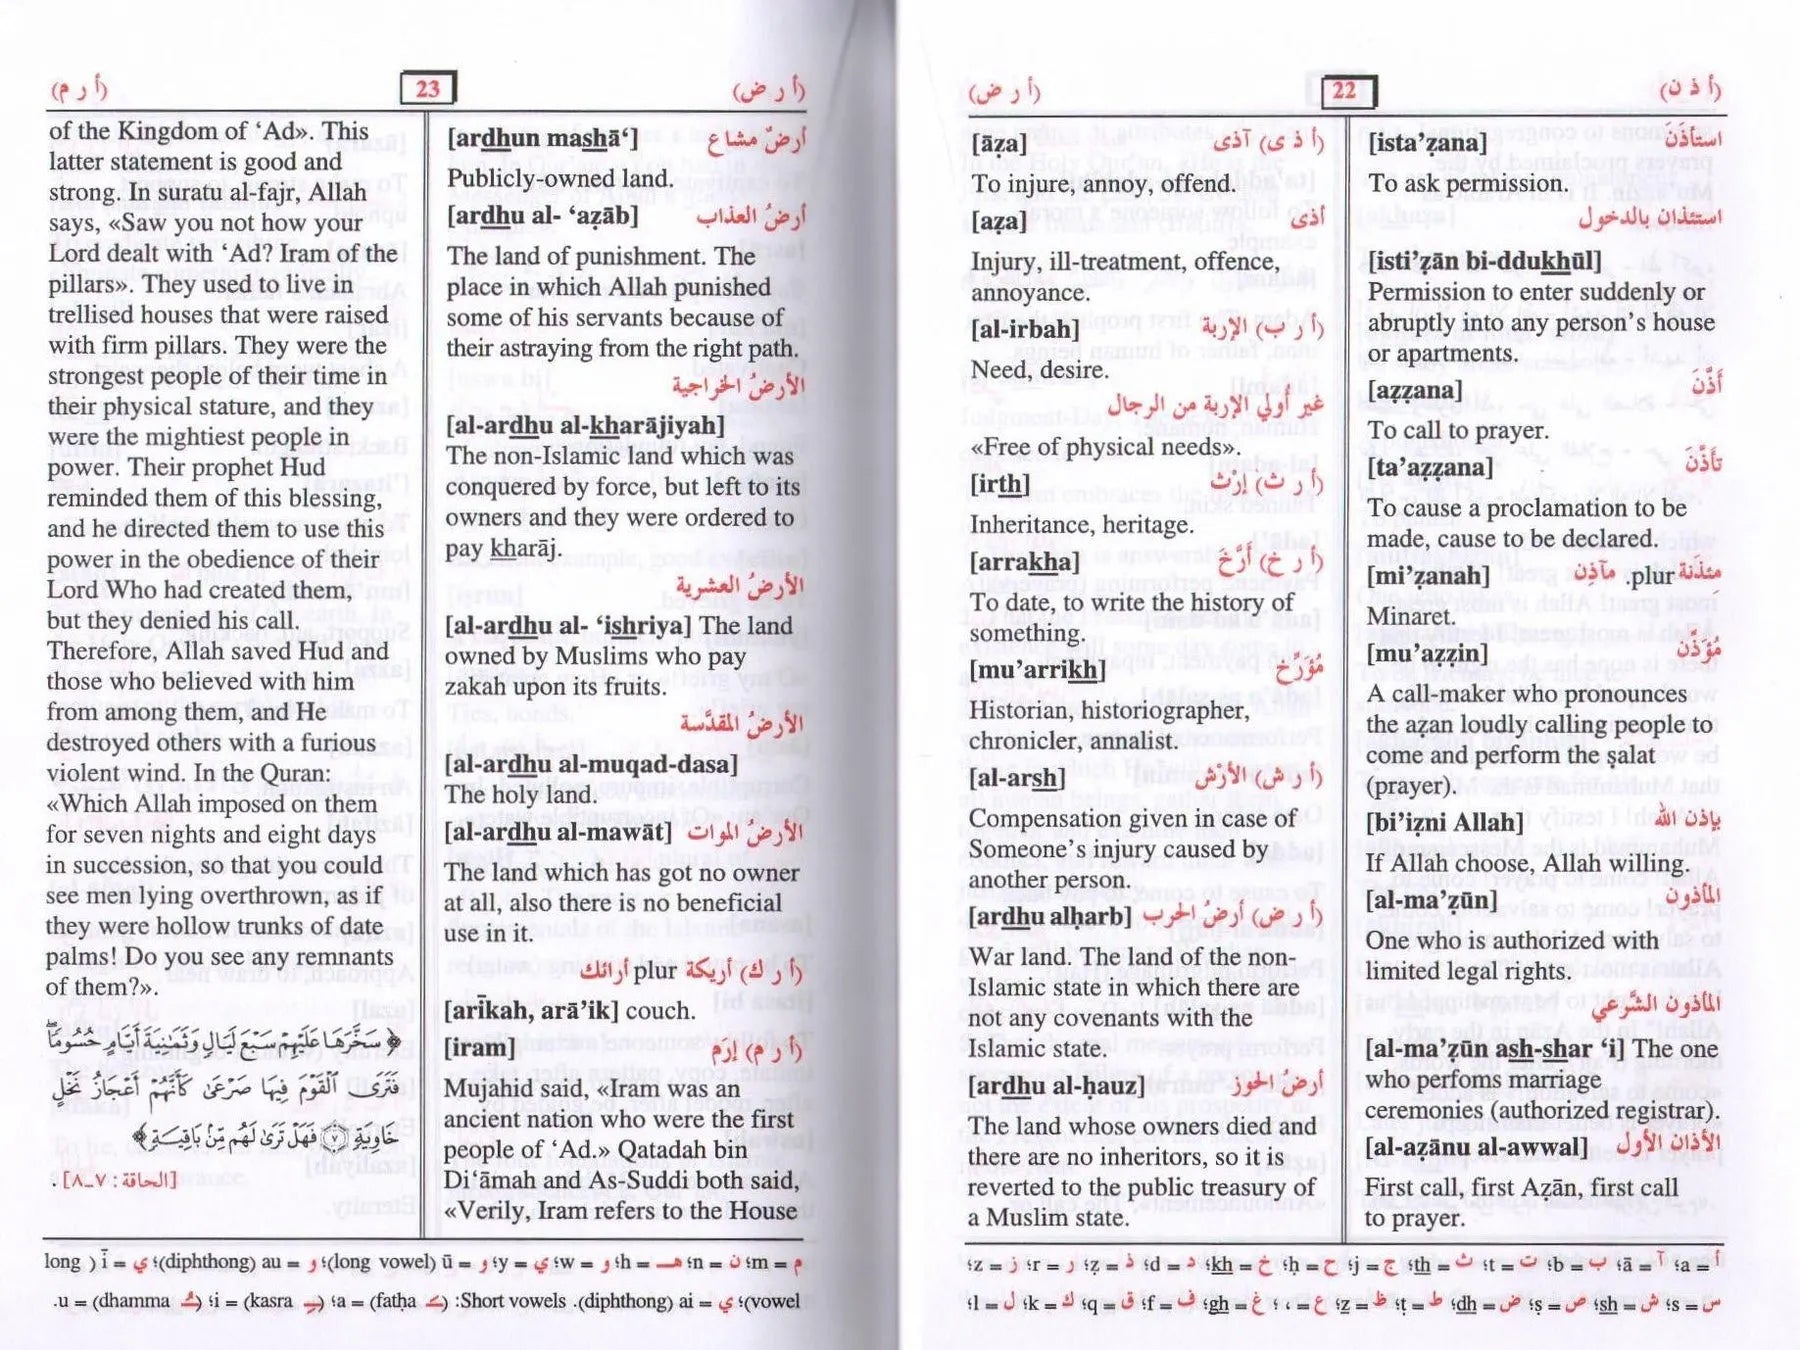 (أ ذ ن) 22 (أ ر ض)
[ista’ẓana] استأذَنَ
To ask permission.
استئذان بالدخول
[isti’ẓān bi-ddukhūl]
Permission to enter suddenly or
abruptly into any person’s house
or apartments.
[aẓẓana] أَذَّنَ
To call to prayer.
[ta’aẓẓana] تأذَّنَ
To cause a proclamation to be
made, cause to be declared.
[mi’ẓanah] مِئذَنة plur. مآذِن
Minaret.
[mu’aẓẓin] مُؤَذِّن
A call-maker who pronounces
the aẓan loudly calling people to
come and perform the ṣalat
(prayer).
[bi’iẓni Allah] بإذن الله
If Allah choose, Allah willing.
[al-ma’ẓūn] المأذون
One who is authorized with
limited legal rights.
المأذون الشَّرعي
[al-ma’ẓūn ash-shar ‘i] The one
who perfoms marriage
ceremonies (authorized registrar).
[al-aẓānu al-awwal] الأذان الأول
First call, first Aẓān, first call
to prayer.
[āza] (أ ذ ى) آذى
To injure, annoy, offend.
[aẓa] أذى
Injury, ill-treatment, offence,
annoyance.
[al-irbah] (أ ر ب) الإربة
Need, desire.
غير أولي الإربة من الرجال
«Free of physical needs».
[irth] (أ ر ث) إرْث
Inheritance, heritage.
[arrakha] (أ ر خ) أرَّخَ
To date, to write the history of
something.
[mu’arrikh] مُؤَرِّخ
Historian, historiographer,
chronicler, annalist.
[al-arsh] (أ ر ش) الأرْش
Compensation given in case of
Someone’s injury caused by
another person.
[ardhu alḥarb] (أ ر ض) أرضُ الحرب
War land. The land of the non-
Islamic state in which there are
not any covenants with the
Islamic state.
[ardhu al-ḥauz] أرضُ الحوز
The land whose owners died and
there are no inheritors, so it is
reverted to the public treasury of
a Muslim state.
أ = a؛ آ = ā؛ ب = b؛ ت = t؛ ث = th؛ ج = j؛ ح = ḥ؛ خ = kh؛ د = d؛ ذ = ẓ؛ ر = r؛ ز = z؛
س = s؛ ش = sh؛ ص = ṣ؛ ض = dh؛ ط = ṭ؛ ظ = ẓ؛ ع = ‘؛ غ = gh؛ ف = f؛ ق = q؛ ك = k؛ ل = l؛
(أ ر ض) 23 (أ ر م)
[ardhun mashā‘] أرضٌ مشاع
Publicly-owned land.
[ardhu al- ‘aẓāb] أرضُ العذاب
The land of punishment. The
place in which Allah punished
some of his servants because of
their astraying from the right path.
الأرضُ الخراجية
[al-ardhu al-kharājiyah]
The non-Islamic land which was
conquered by force, but left to its
owners and they were ordered to
pay kharāj.
الأرضُ العشرية
[al-ardhu al- ‘ishriya] The land
owned by Muslims who pay
zakah upon its fruits.
الأرضُ المقدَّسة
[al-ardhu al-muqad-dasa]
The holy land.
[al-ardhu al-mawāt] الأرضُ الموات
The land which has got no owner
at all, also there is no beneficial
use in it.
(أ ر ك) أريكة plur أرائك
[arīkah, arā’ik] couch.
[iram] (أ ر م) إرَم
Mujahid said, «Iram was an
ancient nation who were the first
people of ‘Ad.» Qatadah bin
Di‘āmah and As-Suddi both said,
«Verily, Iram refers to the House
of the Kingdom of ‘Ad». This
latter statement is good and
strong. In suratu al-fajr, Allah
says, «Saw you not how your
Lord dealt with ‘Ad? Iram of the
pillars». They used to live in
trellised houses that were raised
with firm pillars. They were the
strongest people of their time in
their physical stature, and they
were the mightiest people in
power. Their prophet Hud
reminded them of this blessing,
and he directed them to use this
power in the obedience of their
Lord Who had created them,
but they denied his call.
Therefore, Allah saved Hud and
those who believed with him
from among them, and He
destroyed others with a furious
violent wind. In the Quran:
«Which Allah imposed on them
for seven nights and eight days
in succession, so that you could
see men lying overthrown; as if
they were hollow trunks of date
palms! Do you see any remnants
of them?».
﴿ سَخَّرَهَا عَلَيْهِمْ سَبْعَ لَيَالٍ وَثَمَٰنِيَةَ أَيَّامٍ حُسُومًا
فَتَرَى ٱلْقَوْمَ فِيهَا صَرْعَىٰ كَأَنَّهُمْ أَعْجَازُ نَخْلٍ
خَاوِيَةٍ ۝٧ فَهَلْ تَرَىٰ لَهُم مِّنۢ بَاقِيَةٍ ﴾
[الحاقة: ٧_٨] .
م = m؛ ن = n؛ هـ = h؛ و = w؛ ي = y؛ و = ū (long vowel)؛ و = au (diphthong)؛ ي = ī ( long
vowel)؛ ي = ai (diphthong). Short vowels: (ـَ fatḥa) = a؛ (ـِ kasra) = i؛ (ـُ dhamma) = u.